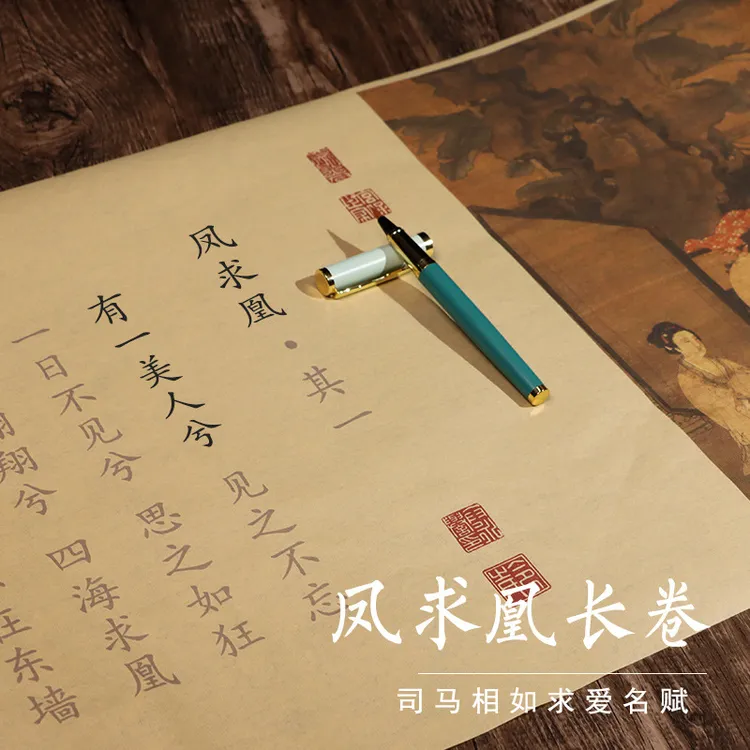 凤求凰·其一
有一美人兮 见之不忘
一日不见兮 思之如狂
翔兮 四海求凰
东墙
凤求凰长卷
司马相如求爱名赋